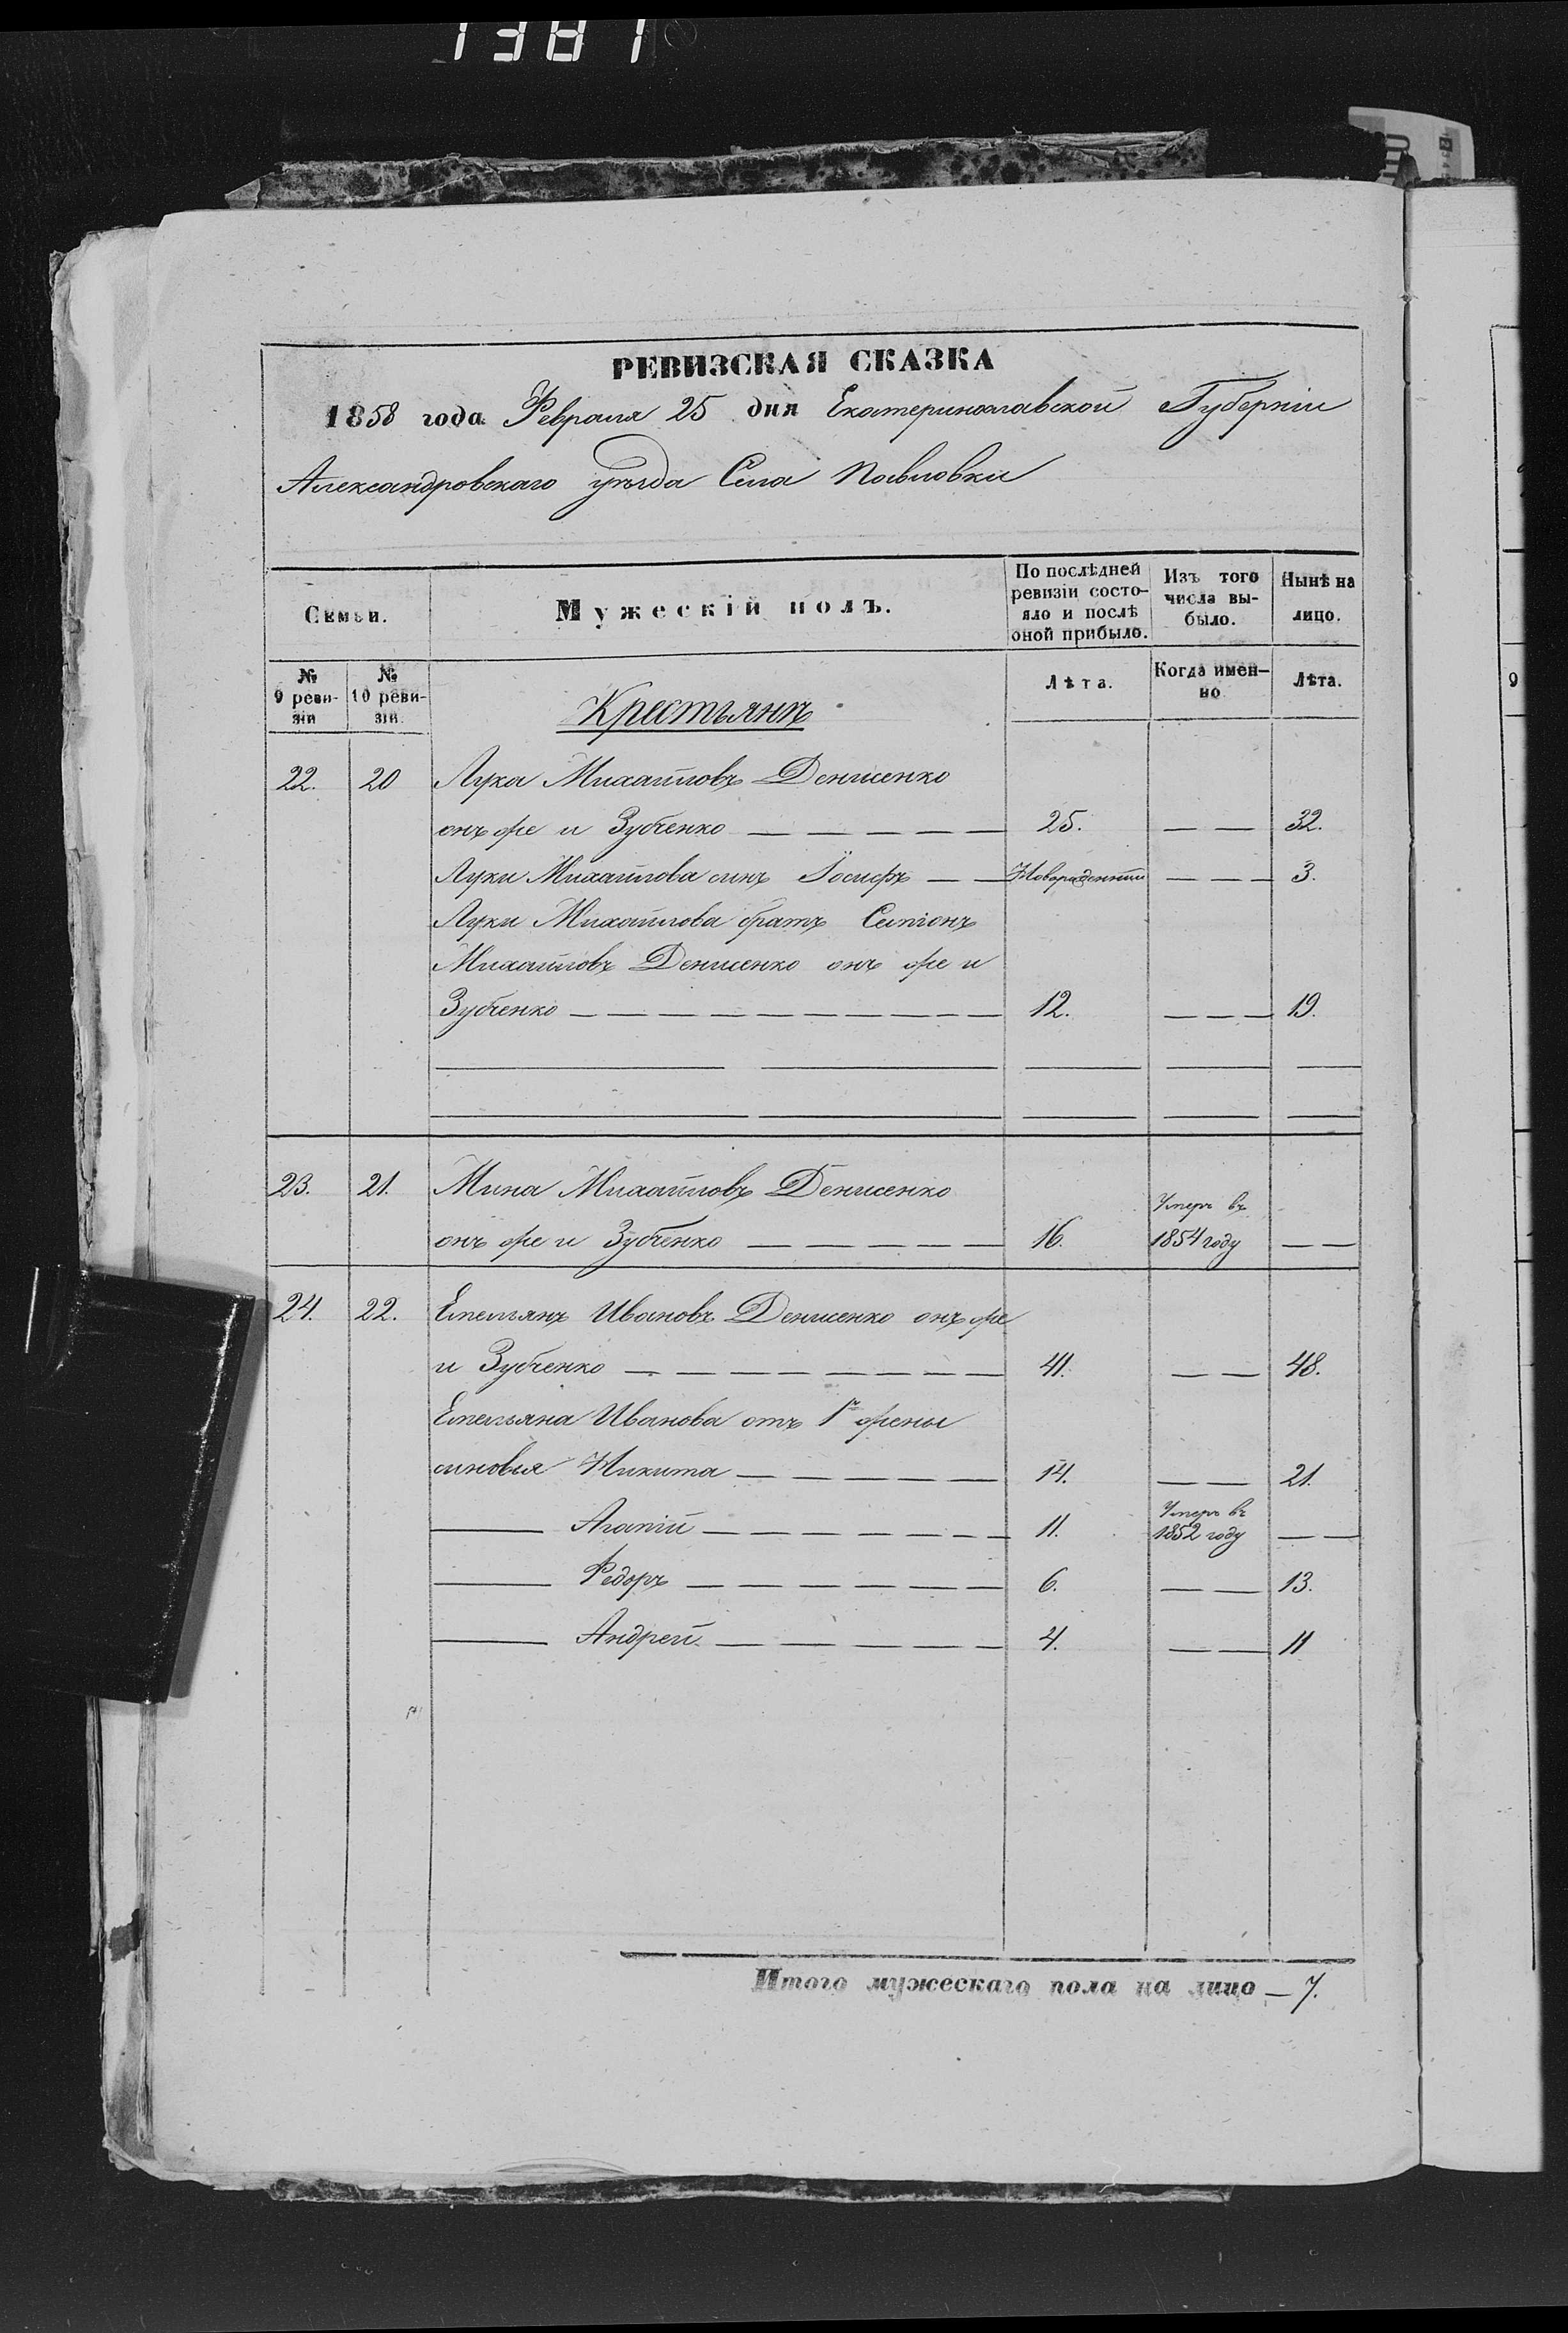 1381
РЕВИЗСКАЯ СКАЗКА
1858 года Февраля 25 дня Екатеринославской Губерніи
Александровскаго уѣзда Села Павловки
Семьи.
Мужескій полъ.
По послѣдней ревизіи состо-яло и послѣ оной прибыло.
Изъ того числа вы-было.
Нынѣ на лицо.
№ 9 реви-зіи
№ 10 реви-зіи.
Лѣта.
Когда имен-но
Лѣта.
9
Крестьянѣ
22. 20 Лука Михайловъ Денисенко
онъ же и Зубченко — 25. — 32.
Луки Михайлова сынъ Іосифъ — Новорожденный — 3.
Луки Михайлова братъ Семіонъ
Михайловъ Денисенко онъ же и
Зубченко — 12. — 19.
23. 21. Мина Михайловъ Денисенко
онъ же и Зубченко — 16. Умеръ въ 1854 году —
24. 22. Емельянъ Ивановъ Денисенко онъ же
и Зубченко — 41. — 48.
Емельяна Иванова отъ 1й жены
сыновья Никита — 14. — 21.
— Агапій — 11. Умеръ въ 1852 году —
— Федоръ — 6. — 13.
— Андрей — 4. — 11
Итого мужескаго пола на лицо — 7.